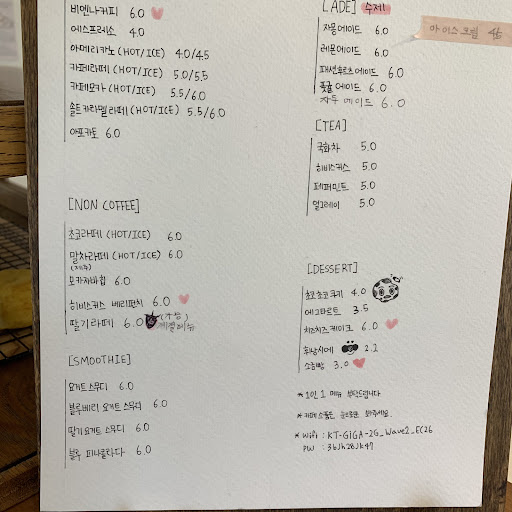 비엔나커피 6.0
에스프레소 4.0
아메리카노 (HOT/ICE) 4.0/4.5
카페라떼 (HOT/ICE) 5.0/5.5
카페모카 (HOT/ICE) 5.5/6.0
솔트카라멜라떼 (HOT/ICE) 5.5/6.0
아포카토 6.0
[NON COFFEE]
초코라떼 (HOT/ICE) 6.0
말차라떼 (HOT/ICE) 6.0
(제주)
모카자바칩 6.0
히비스커스 베리펀치 6.0
딸기라떼 6.0
[SMOOTHIE]
요거트 스무디 6.0
블루베리 요거트 스무디 6.0
딸기 요거트 스무디 6.0
블루 피나콜라다 6.0
[ADE] 수제!
자몽에이드 6.0
레몬에이드 6.0
패션후르츠에이드 6.0
풋귤에이드 6.0
자두에이드 6.0
아이스크림 4.5
[TEA]
국화차 5.0
히비스커스 5.0
페퍼민트 5.0
얼그레이 5.0
[DESSERT]
초코초코쿠키 4.0
에그타르트 3.5
치즈치즈케이크 6.0
휘낭시에 2.2
소금빵 3.0
* 1인 1 메뉴 부탁드립니다
* Wifi : KT-GIGA-2G_Wave2_EC26
PW : 3bJh28Jk47